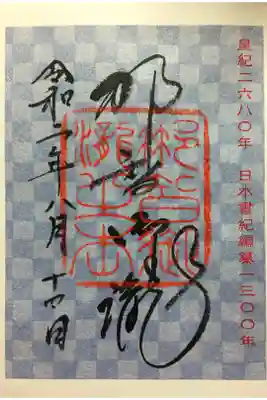 皇紀二六八〇年　日本書紀編纂一三〇〇年
那智御瀧
令和二年八月十四日